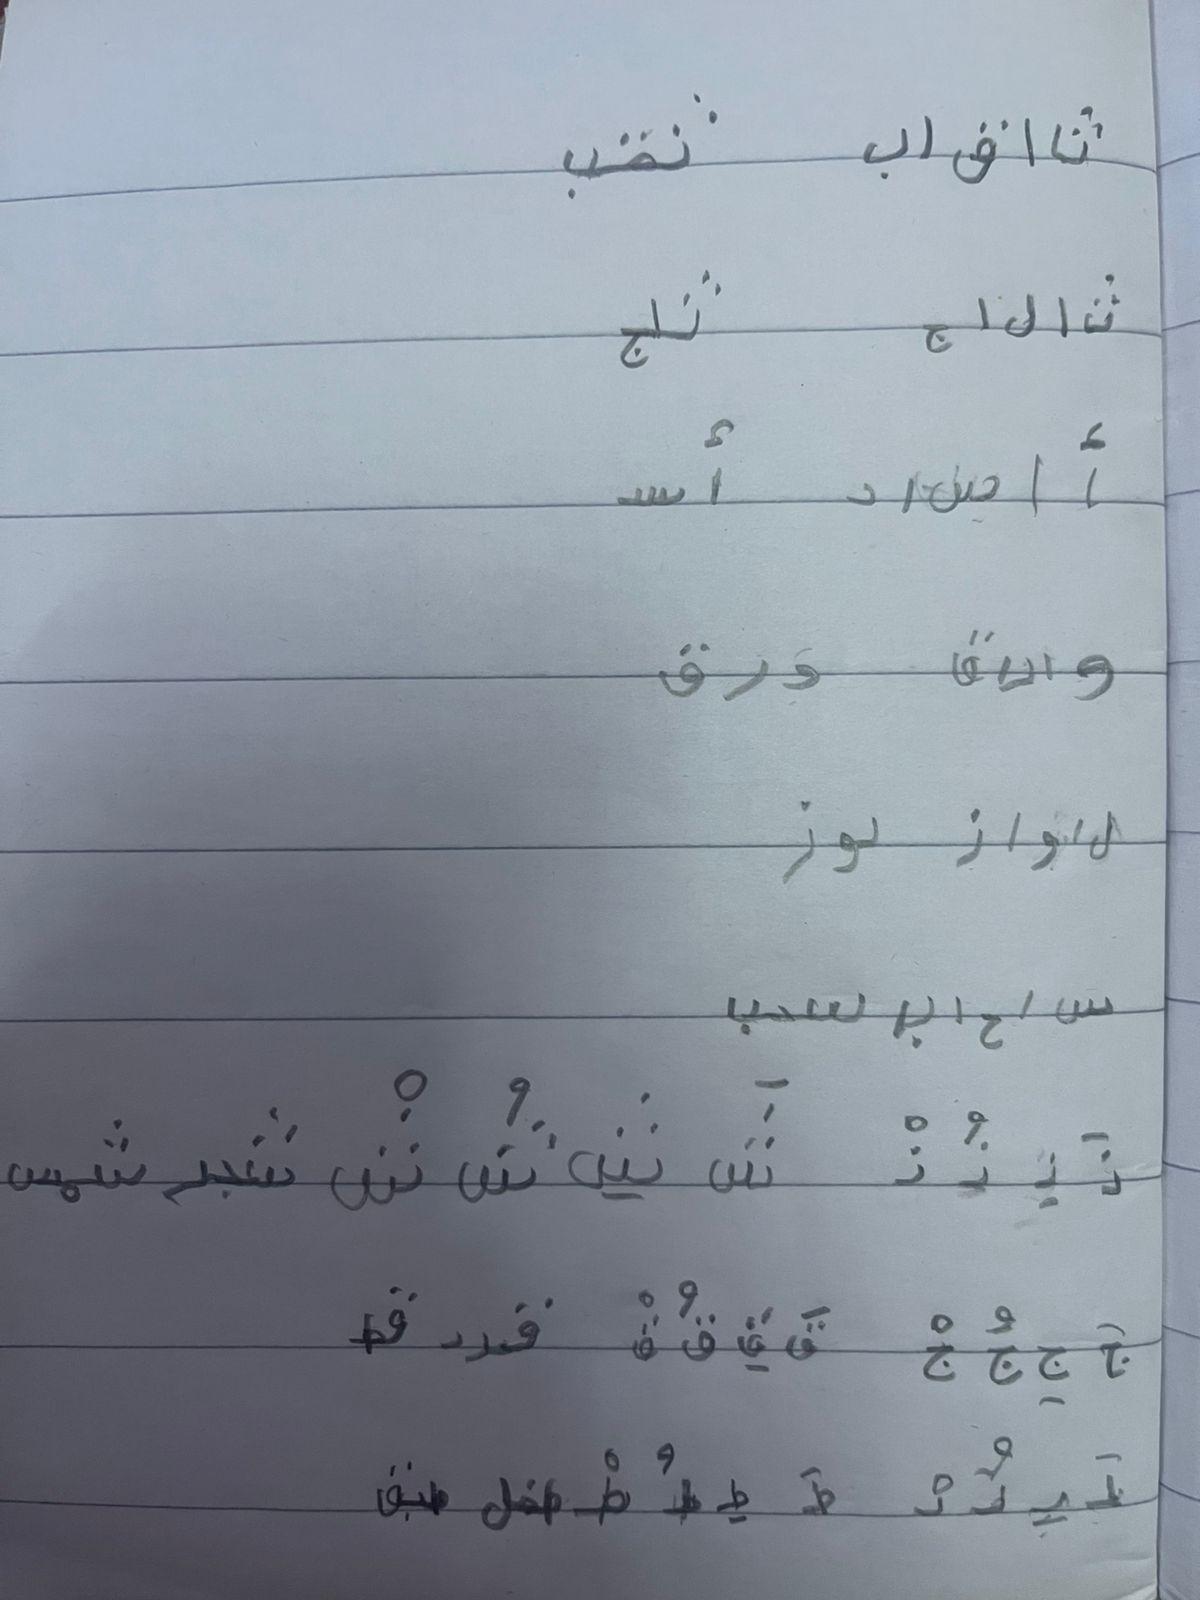 ث ا ق ا ب ثقب
ث ا ل ا ج ثلج
أ ا س ا د أسد
و ا ر ا ق ورق
ل ا و ا ز لوز
س ا ح ا ب سحب
ذَ ذِ ذُ ذْ شَ شِ شُ شْ شجر شمس
جَ جِ جُ جْ قَ قِ قُ قْ قرد قط
دَ دِ دُ دْ طَ طِ طُ طْ طفل طبق